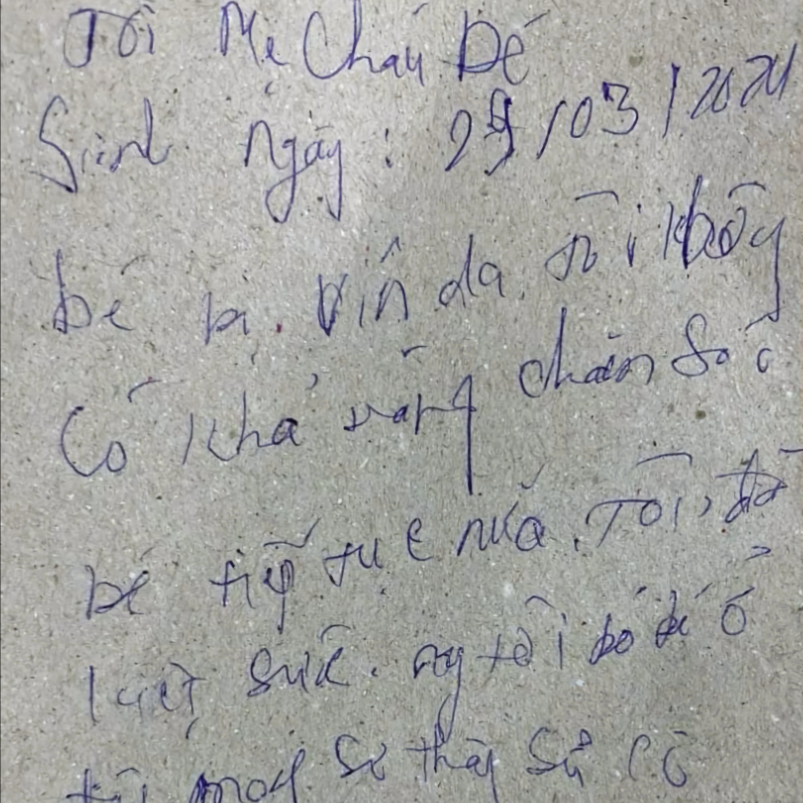 Tôi Mẹ Cháu Bé
Sinh ngày: 29/03/2024
bé bị. viên da. tôi không
Có khả năng chăm sóc
bé tiếp tục nữa. Tôi, đã
kiệt sức. người bố
tôi mong sư thầy Sư Cô